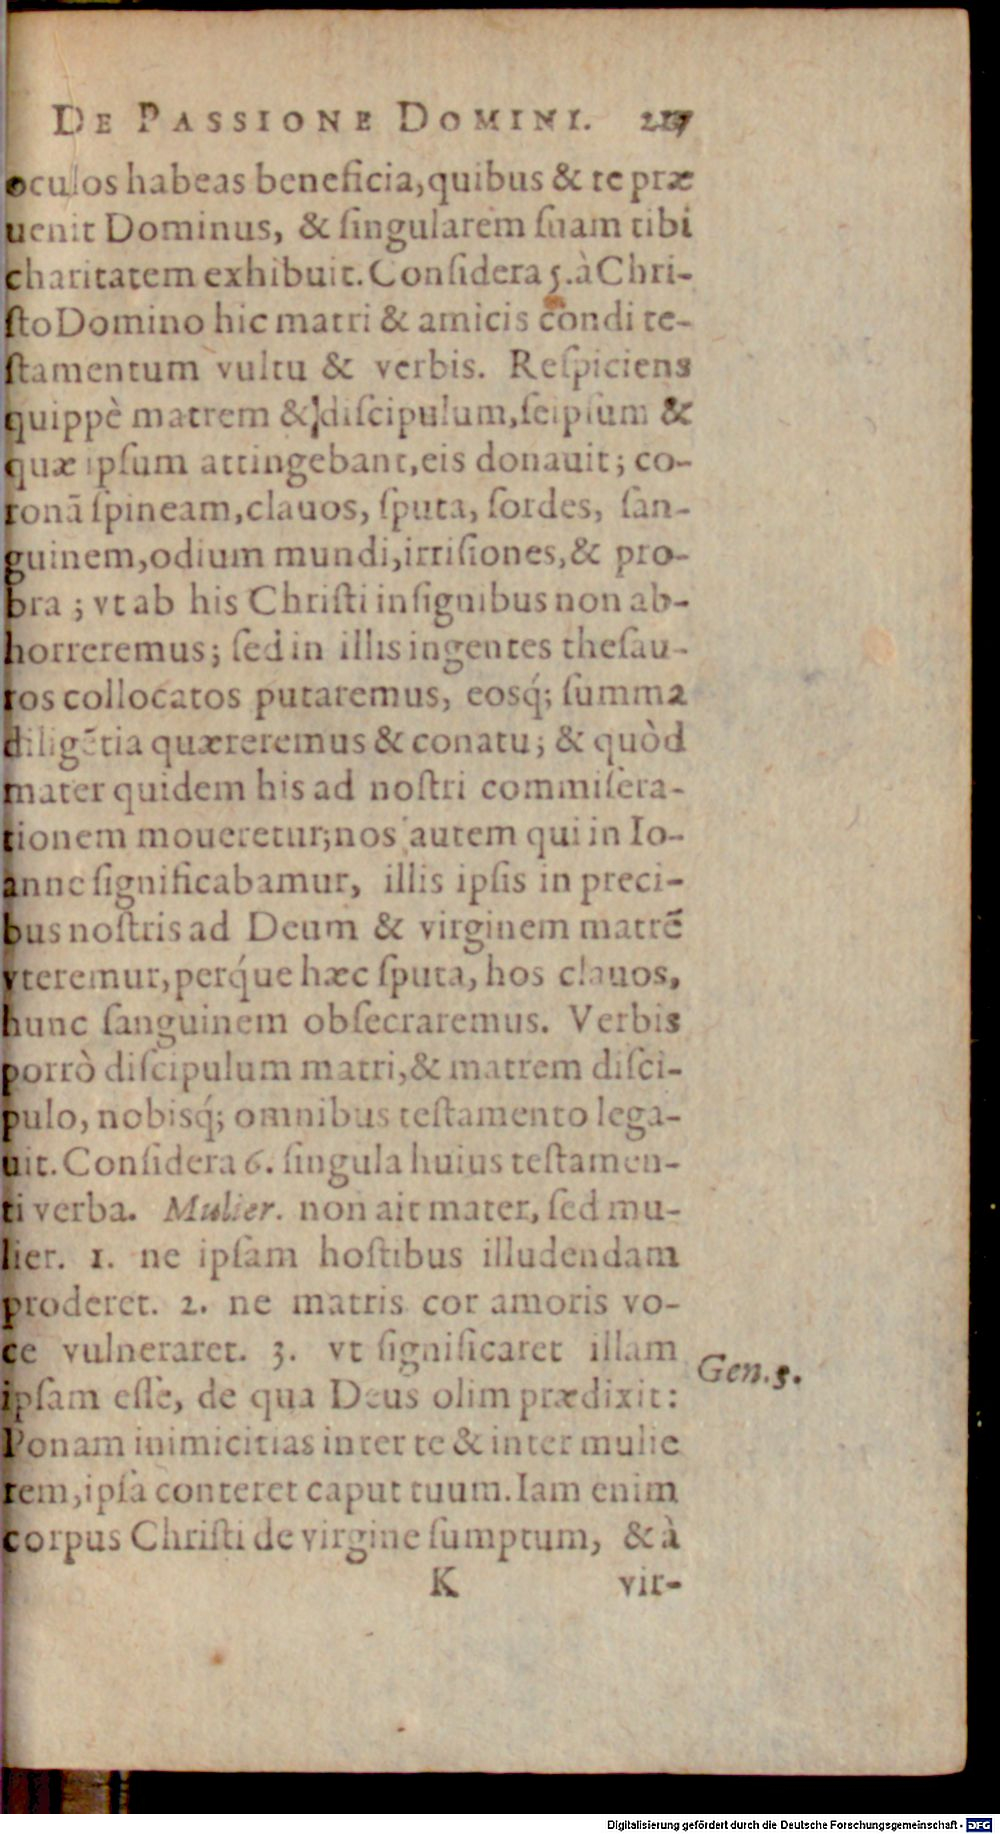 DE PASSIONE DOMINI. 217
oculos habeas beneficia, quibus & te præ
uenit Dominus, & ſingularem ſuam tibi
charitatem exhibuit. Conſidera 5. à Chri-
ſto Domino hic matri & amicis condi te-
ſtamentum vultu & verbis. Reſpiciens
quippè matrem & diſcipulum, ſeipſum &
quæ ipſum attingebant, eis donauit; co-
ronā ſpineam, clauos, ſputa, ſordes, ſan-
guinem, odium mundi, irriſiones, & pro-
bra ; vt ab his Chriſti inſignibus non ab-
horreremus; ſed in illis ingentes theſau-
ros collocatos putaremus, eosq́; ſumma
diligētia quæreremus & conatu; & quòd
mater quidem his ad noſtri commiſera-
tionem moueretur; nos autem qui in Io-
anne ſignificabamur, illis ipſis in preci-
bus noſtris ad Deum & virginem matrē
vteremur, perq́ue hæc ſputa, hos clauos,
hunc ſanguinem obſecraremus. Verbis
porrò diſcipulum matri, & matrem diſci-
pulo, nobisq́; omnibus teſtamento lega-
uit. Conſidera 6. ſingula huius teſtamen-
ti verba. Mulier. non ait mater, ſed mu-
lier. 1. ne ipſam hoſtibus illudendam
proderet. 2. ne matris cor amoris vo-
ce vulneraret. 3. vt ſignificaret illam
ipſam eſſe, de qua Deus olim prædixit:
Gen.3.
Ponam inimicitias inter te & inter mulie
rem, ipſa conteret caput tuum. Iam enim
corpus Chriſti de virgine ſumptum, & à
K vir-
Digitalisierung gefördert durch die Deutsche Forschungsgemeinschaft - DFG